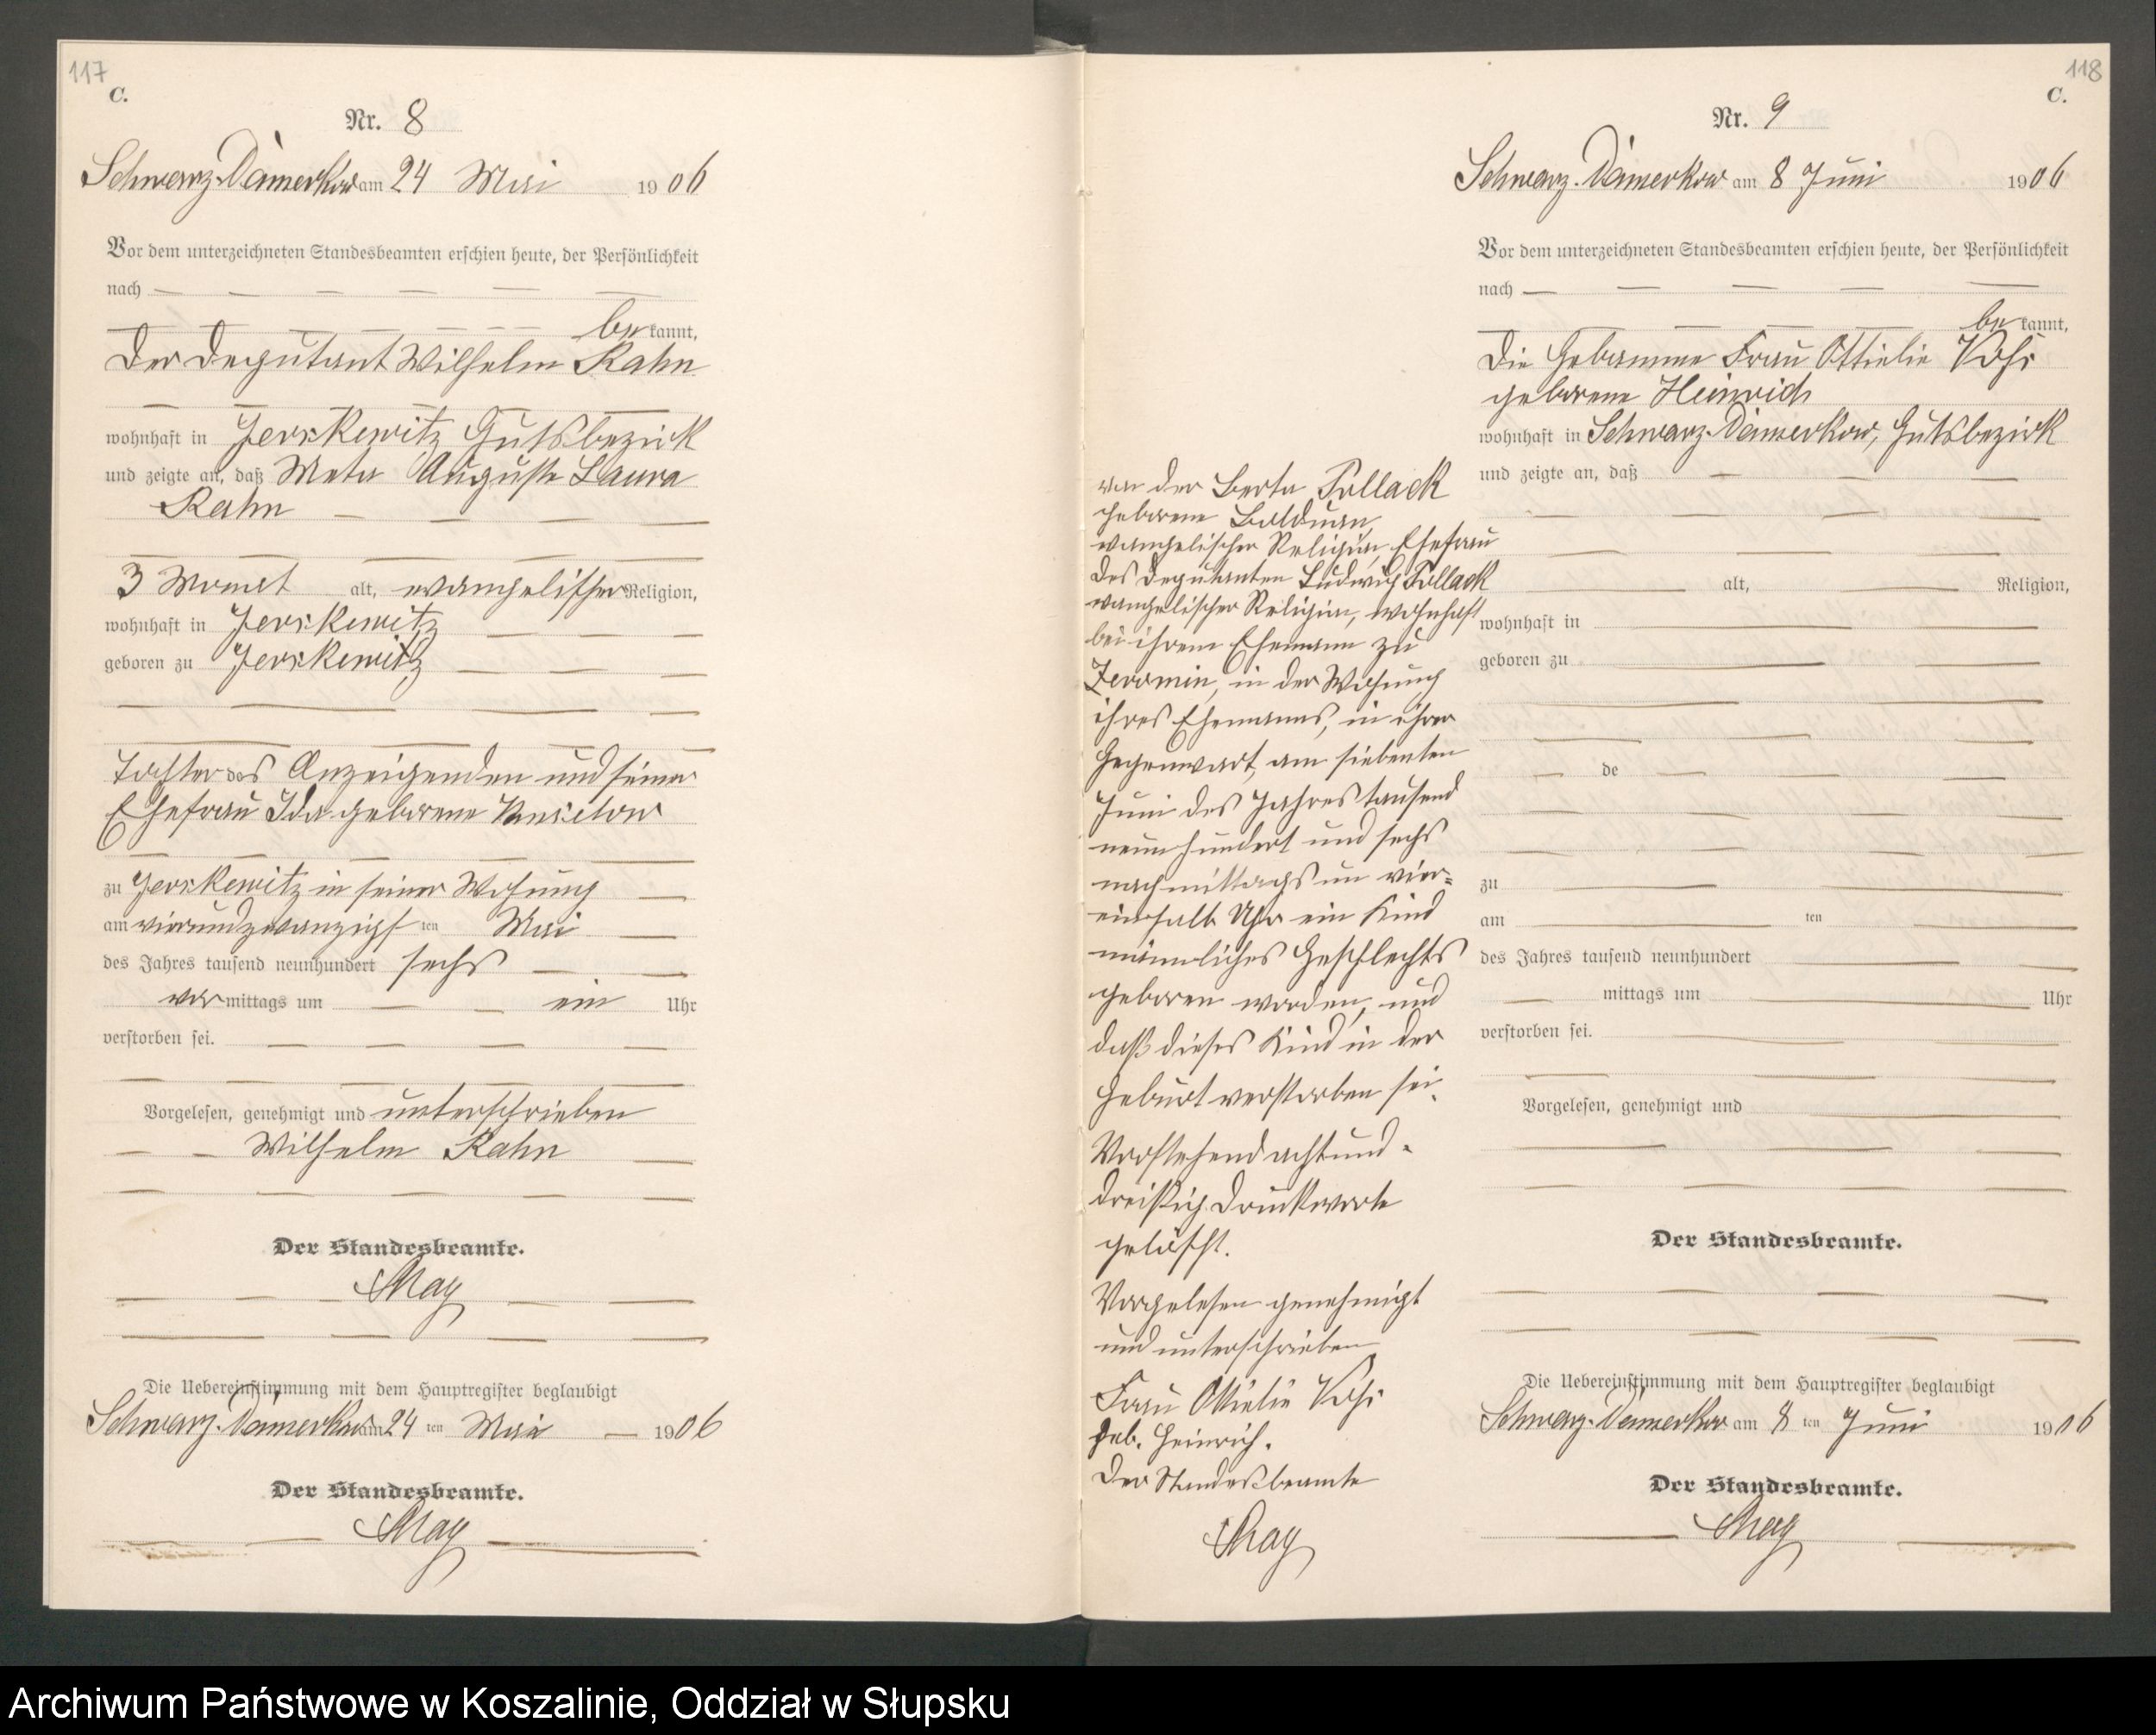 117
C.
Nr. 8
Schwarz-Damerkow am 24 Mai 1906
Vor dem unterzeichneten Standesbeamten erschien heute, der Persönlichkeit
nach
bekannt,
Der Deputant Wilhelm Rahn
wohnhaft in Jerskewitz Gutsbezirk
und zeigte an, daß Meta Auguste Laura
Rahn
3 Monat alt, evangelischer Religion,
wohnhaft in Jerskewitz
geboren zu Jerskewitz
Tochter des Anzeigenden und seiner
Ehefrau Ida geborene
zu Jerskewitz in seiner Wohnung
am vierundzwanzigsten Mai
des Jahres tausend neunhundert sechs
vormittags um ein Uhr
verstorben sei.
Vorgelesen, genehmigt und unterschrieben
Wilhelm Rahn
Der Standesbeamte.
May
Die Uebereinstimmung mit dem Hauptregister beglaubigt
Schwarz-Damerkow am 24 ten Mai 1906
Der Standesbeamte.
May
118
C.
Nr. 9
Schwarz-Damerkow am 8 Juni 1906
Vor dem unterzeichneten Standesbeamten erschien heute, der Persönlichkeit
nach
bekannt,
Die Hebamme Frau Ottielie
geborene Heinrich
wohnhaft in Schwarz-Damerkow, Gutsbezirk
und zeigte an, daß
von der Berta Pollack
geborene Balduan,
evangelischer Religion, Ehefrau
des Deputanten Ludwig Pollack
evangelischer Religion, wohnhaft
bei ihrem Ehemann zu
Zeromin, in der Wohnung
ihres Ehemanns, in ihrer
Gegenwart, am siebenten
Juni des Jahres tausend
neunhundert und sechs
nachmittags um vier=
einhalb Uhr ein Kind
männliches Geschlechts
geboren worden, und
daß dieses Kind in der
Geburt verstorben sei.
Vorstehend achtund-
dreißig Druckworte
gelöscht.
Vorgelesen genehmigt
und unterschrieben
Frau Ottielie
geb. Heinrich.
Der Standesbeamte
May
alt, Religion,
wohnhaft in
geboren zu
de
zu
am ten
des Jahres tausend neunhundert
mittags um Uhr
verstorben sei.
Vorgelesen, genehmigt und
Der Standesbeamte.
Die Uebereinstimmung mit dem Hauptregister beglaubigt
Schwarz-Damerkow am 8 ten Juni 1906
Der Standesbeamte.
May
Archiwum Państwowe w Koszalinie, Oddział w Słupsku